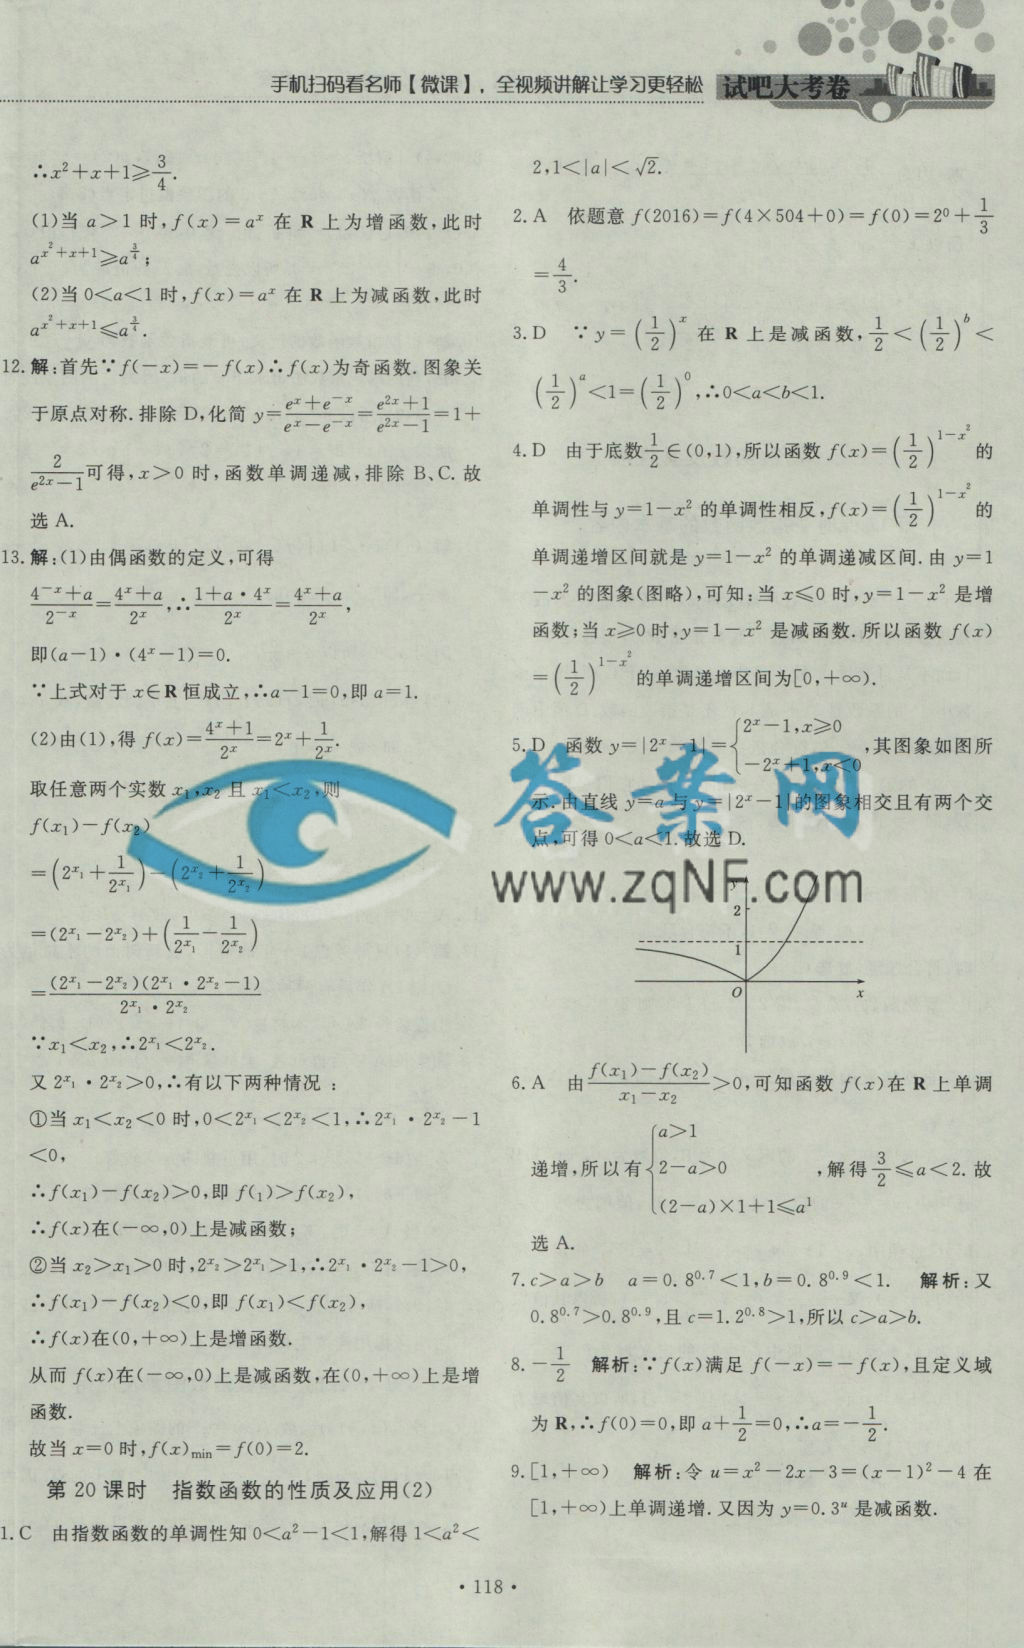 手机扫码看名师【微课】，全视频讲解让学习更轻松 试吧大考卷
∴x²+x+1≥3/4.
(1)当 a>1 时,f(x)=aˣ 在 R 上为增函数,此时
a^(x²+x+1)≥a^(3/4);
(2)当 0<a<1 时,f(x)=aˣ 在 R 上为减函数,此时
a^(x²+x+1)≤a^(3/4).
12.解:首先∵f(-x)=-f(x)∴f(x)为奇函数.图象关
于原点对称.排除 D,化简 y=(eˣ+e⁻ˣ)/(eˣ-e⁻ˣ)=(e²ˣ+1)/(e²ˣ-1)=1+
2/(e²ˣ-1)可得,x>0 时,函数单调递减,排除 B、C.故
选 A.
13.解:(1)由偶函数的定义,可得
(4⁻ˣ+a)/2⁻ˣ=(4ˣ+a)/2ˣ,∴(1+a·4ˣ)/2ˣ=(4ˣ+a)/2ˣ,
即(a-1)·(4ˣ-1)=0.
∵上式对于 x∈R 恒成立,∴a-1=0,即 a=1.
(2)由(1),得 f(x)=(4ˣ+1)/2ˣ=2ˣ+1/2ˣ.
取任意两个实数 x₁,x₂ 且 x₁<x₂,则
f(x₁)-f(x₂)
=(2^x₁+1/2^x₁)-(2^x₂+1/2^x₂)
=(2^x₁-2^x₂)+(1/2^x₁-1/2^x₂)
=(2^x₁-2^x₂)(2^x₁·2^x₂-1)/(2^x₁·2^x₂)
∵x₁<x₂,∴2^x₁<2^x₂.
又 2^x₁·2^x₂>0,∴有以下两种情况:
①当 x₁<x₂<0 时,0<2^x₁<2^x₂<1,∴2^x₁·2^x₂-1
<0,
∴f(x₁)-f(x₂)>0,即 f(₁)>f(x₂),
∴f(x)在(-∞,0)上是减函数;
②当 x₂>x₁>0 时,2^x₂>2^x₁>1,∴2^x₁·2^x₂-1>0,
∴f(x₁)-f(x₂)<0,即 f(x₁)<f(x₂),
∴f(x)在(0,+∞)上是增函数.
从而 f(x)在(-∞,0)上是减函数,在(0,+∞)上是增
函数.
故当 x=0 时,f(x)min=f(0)=2.
第 20 课时 指数函数的性质及应用(2)
1.C 由指数函数的单调性知 0<a²-1<1,解得 1<a²<
2,1<|a|<√2.
2.A 依题意 f(2016)=f(4×504+0)=f(0)=2⁰+1/3
=4/3.
3.D ∵y=(1/2)ˣ 在 R 上是减函数,1/2<(1/2)ᵇ<
(1/2)ᵃ<1=(1/2)⁰,∴0<a<b<1.
4.D 由于底数1/2∈(0,1),所以函数 f(x)=(1/2)^(1-x²) 的
单调性与 y=1-x² 的单调性相反,f(x)=(1/2)^(1-x²) 的
单调递增区间就是 y=1-x² 的单调递减区间.由 y=1
-x² 的图象(图略),可知:当 x≤0 时,y=1-x² 是增
函数;当 x≥0时,y=1-x² 是减函数.所以函数 f(x)
=(1/2)^(1-x²) 的单调递增区间为[0,+∞).
5.D 函数 y=|2ˣ-1|={2ˣ-1,x≥0
-2ˣ+1,x<0 ,其图象如图所
示.由直线 y=a 与 y=|2ˣ-1|的图象相交且有两个交
点,可得 0<a<1.故选 D.
答案网
www.zqNF.com
y
2
1
O
x
6.A 由(f(x₁)-f(x₂))/(x₁-x₂)>0,可知函数 f(x)在 R 上单调
递增,所以有{a>1
2-a>0
(2-a)×1+1≤a¹ ,解得3/2≤a<2.故
选 A.
7.c>a>b a=0.8^0.7<1,b=0.8^0.9<1. 解析:又
0.8^0.7>0.8^0.9,且 c=1.2^0.8>1,所以 c>a>b.
8.-1/2 解析:∵f(x)满足 f(-x)=-f(x),且定义域
为 R,∴f(0)=0,即 a+1/2=0,∴a=-1/2.
9.[1,+∞) 解析:令 u=x²-2x-3=(x-1)²-4 在
[1,+∞)上单调递增.又因为 y=0.3ᵘ 是减函数.
·118·